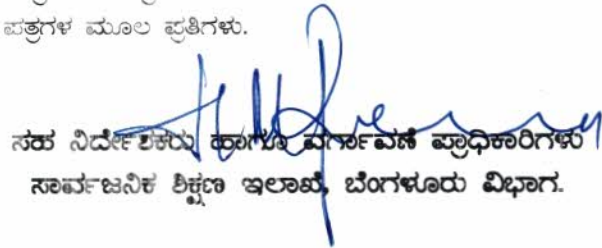 ಪತ್ರಗಳ ಮೂಲ ಪ್ರತಿಗಳು.
ಸಹ ನಿರ್ದೇಶಕರು ಹಾಗೂ ವರ್ಗಾವಣೆ ಪ್ರಾಧಿಕಾರಿಗಳು
ಸಾರ್ವಜನಿಕ ಶಿಕ್ಷಣ ಇಲಾಖೆ, ಬೆಂಗಳೂರು ವಿಭಾಗ.